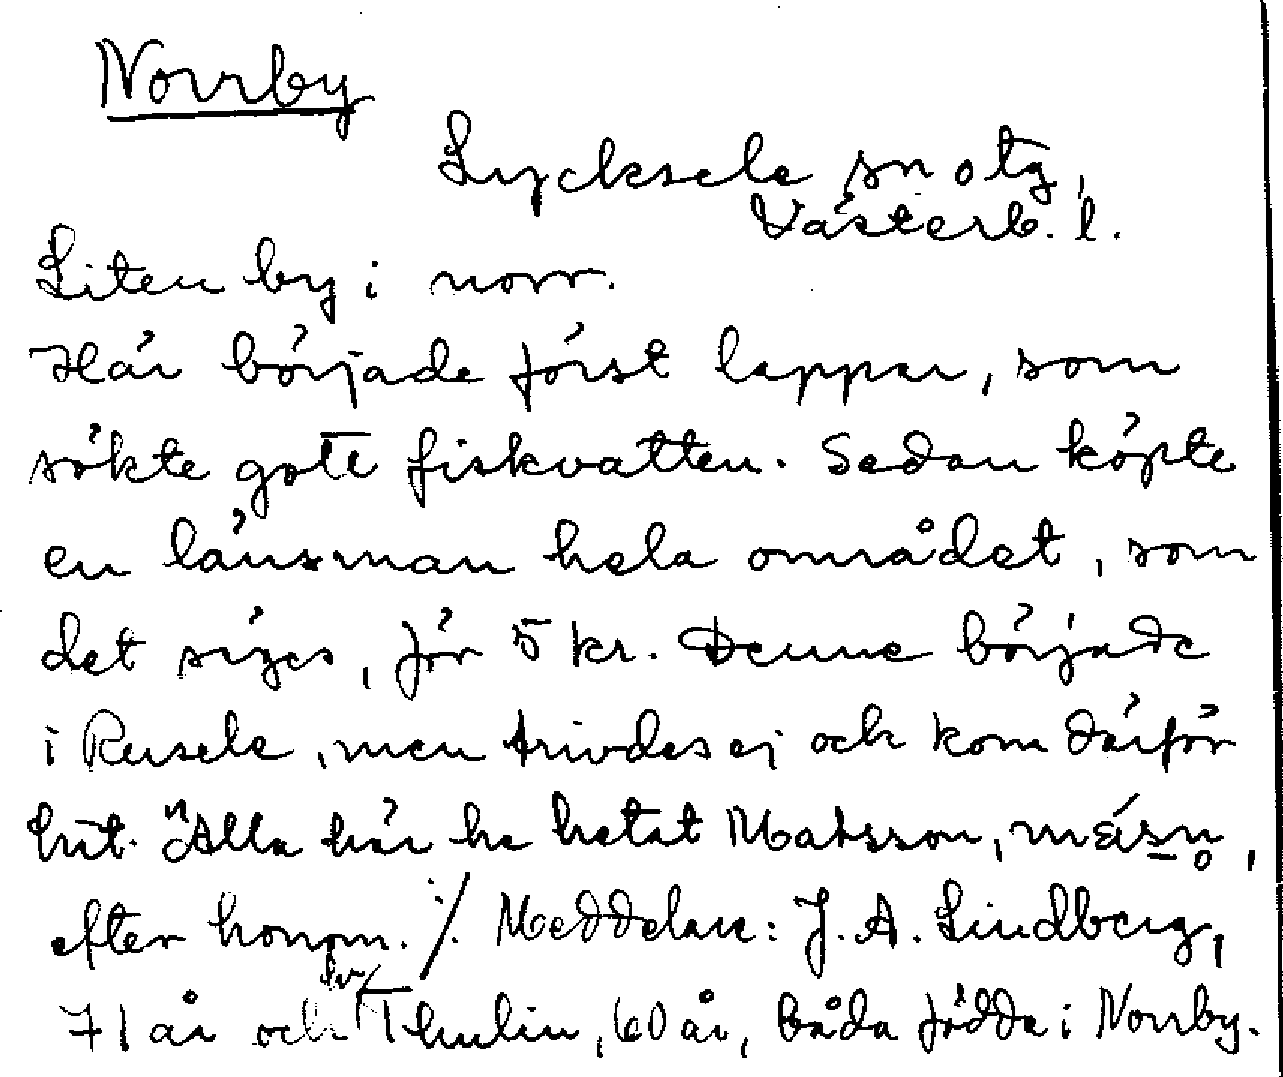 Norrby
Lycksele sn o tg,
Västerb. l.
Liten by i norr.
Här började först lappar, som
sökte gott fiskvatten. Sedan köpte
en länsman hela området, som
det säges, för 5 kr. Denne började
i Rusele, men trivdes ej och kom därför
hit. "Alla här ha hetat Matsson,
efter honom. ./. Meddelare: J. A. Lindberg,
71 år och Thulin, 60 år, båda födda i Norrby.